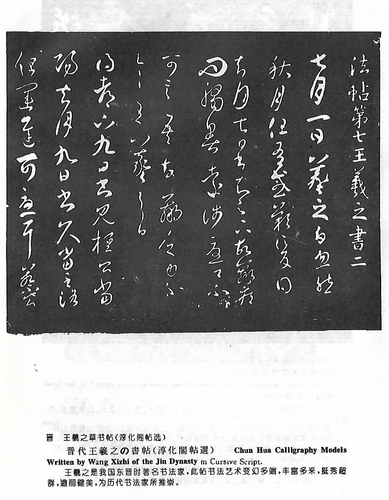 法帖第七王羲之書二
七月一日羲之白忽然
秋月但有感歎信反得
去月七日書知足下故羸疾
問觸暑遠涉憂卿不
可言吾故羸乏力不
具王羲之白
得都下九日書見桓公當
陽去月九日書久當至洛
但運遲可憂耳蔡公
晋　王羲之草书帖(淳化阁帖选)
晋代王羲之の書帖(淳化閣帖選)　Chun Hua Calligraphy Models
Written by Wang Xizhi of the Jin Dynasty m Cursive Script.
王羲之是我国东晋时著名书法家,此帖书法艺术变幻多端,丰富多采,挺秀超
群,遒丽健美,为历代书法家所推崇。